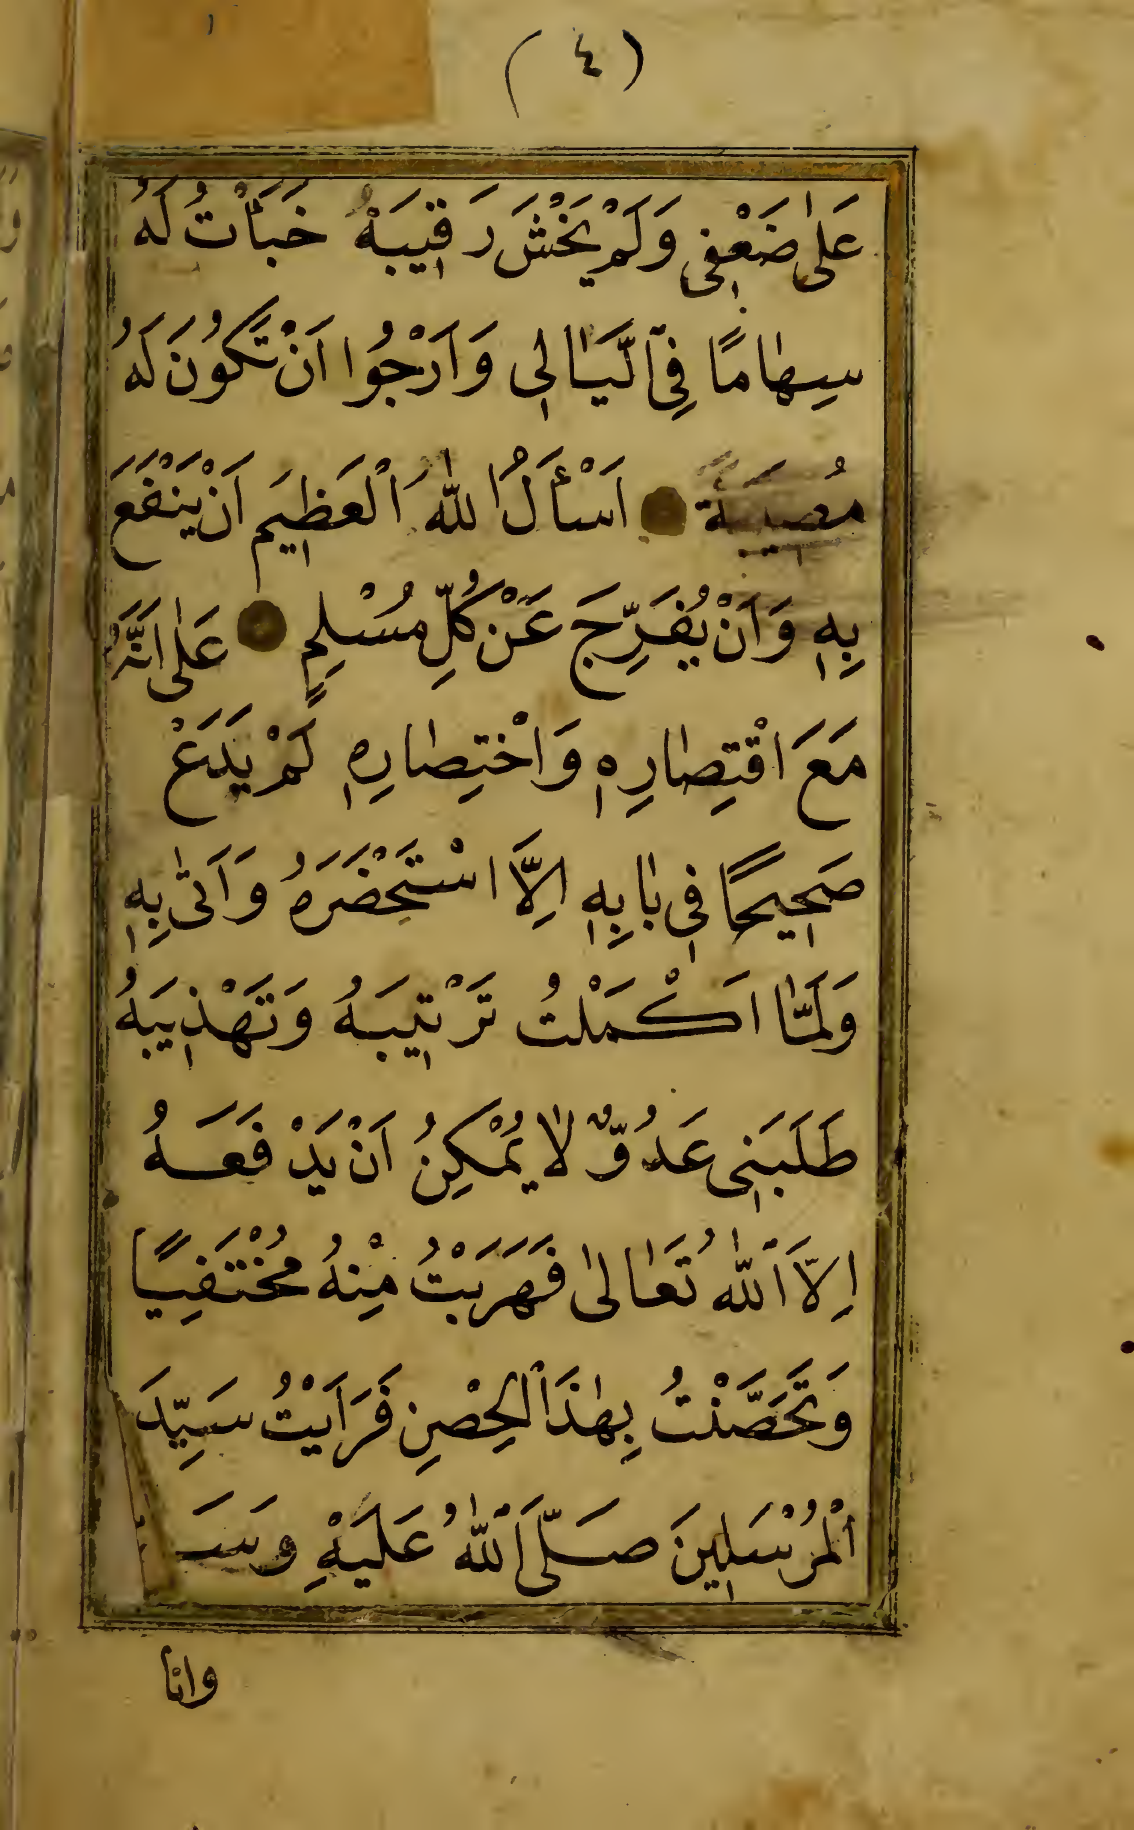 (٤)
عَلٰى ضَعْفٖى وَلَمْ يَخْشَ رَقٖيبَهُ خَبَأْتُ لَهُ
سِهٰامًا فِى ٱللَّيَالٖى وَاَرْجُوا اَنْ تَكُونَ لَهُ
مُصٖيبَةً اَسْأَلُ اللهَ الْعَظٖيمَ اَنْ يَنْفَعَ
بِهٖ وَاَنْ يُفَرِّجَ عَنْ كُلِّ مُسْلِمٍ عَلٰى اَنَّهُ
مَعَ اقْتِصٰارِهٖ وَاخْتِصٰارِهٖ لَمْ يَدَعْ
صَحٖيحًا فٖى بٰابِهٖ اِلَّا اسْتَحْضَرَهُ وَاَتٰى بِهٖ
وَلَمّٰا اَكْمَلْتُ تَرْتٖيبَهُ وَتَهْذٖيبَهُ
طَلَبَنٖى عَدُوٌّ لٰا يُمْكِنُ اَنْ يَدْفَعَهُ
اِلَّا اللّٰهُ تَعٰالٰى فَهَرَبْتُ مِنْهُ مُخْتَفِيًا
وَتَحَصَّنْتُ بِهٰذَا الْحِصْنِ فَرَاَيْتُ سَيِّدَ
الْمُرْسَلٖينَ صَلَّى اللّٰهُ عَلَيْهِ وَسَ
وانا